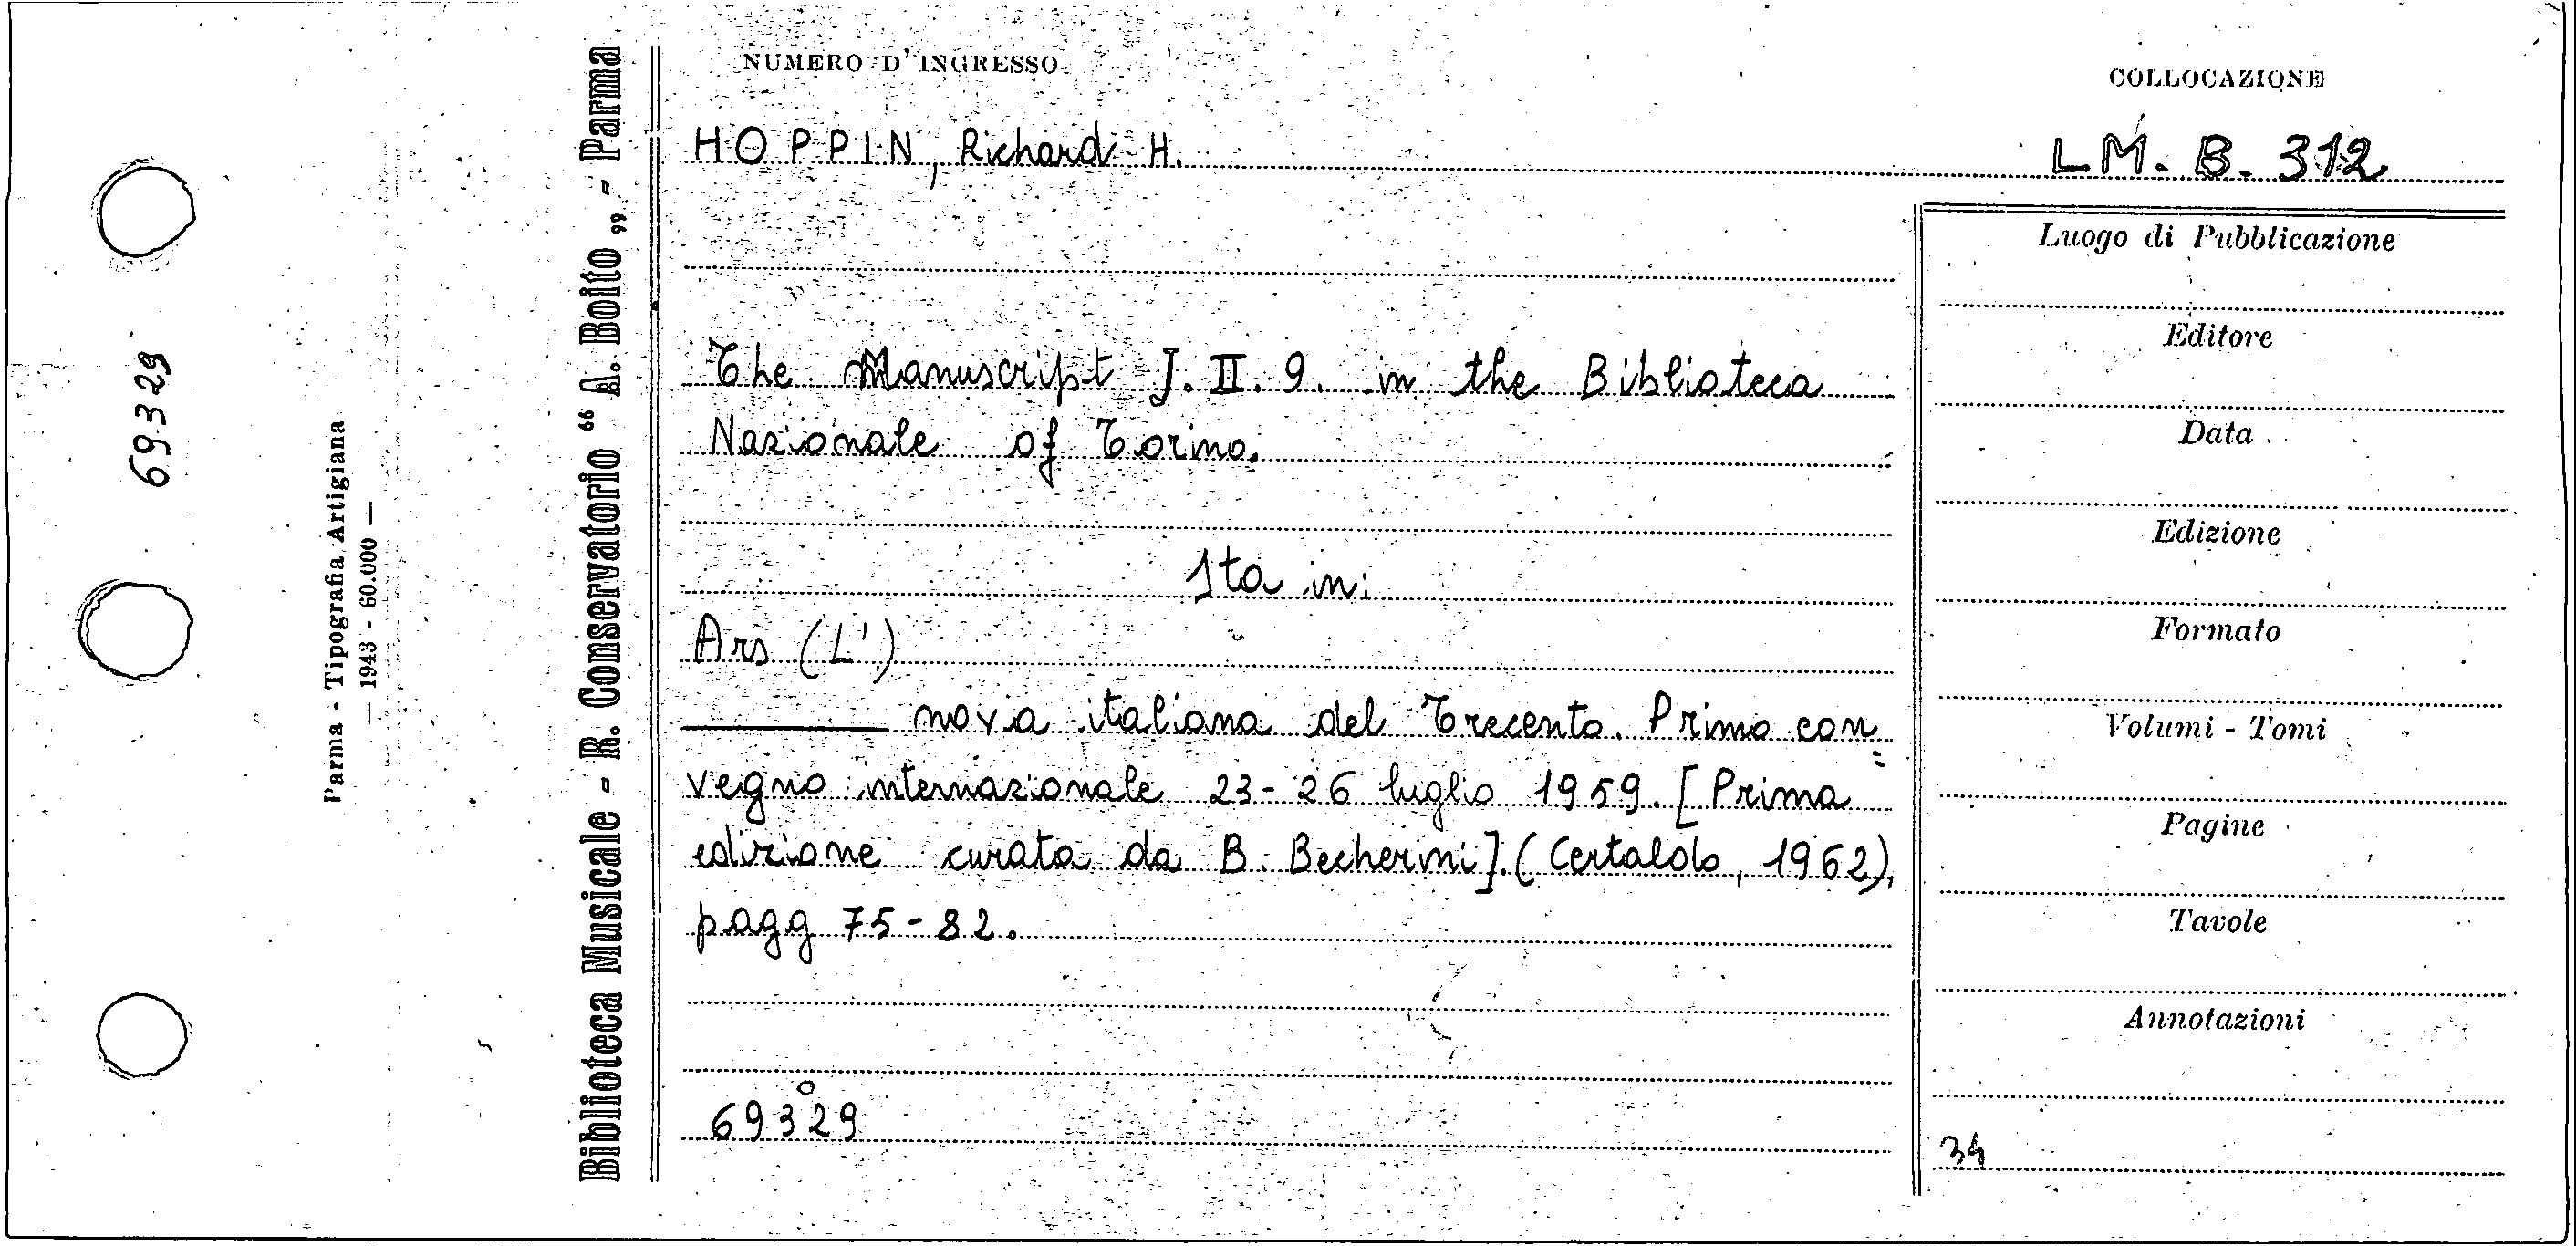 69329
Parma - Tipografia Artigiana
— 1943 - 60.000 —
Biblioteca Musicale - R. Conservatorio “ A. Boito „ - Parma
NUMERO D'INGRESSO
COLLOCAZIONE
HOPPIN, Richard H.
LM. B. 312
The Manuscript J. II. 9. in the Biblioteca
Nazionale of Torino.
Sta in:
Ars (L')
——— nova italiana del Trecento. Primo con=
vegno internazionale 23-26 luglio 1959. [Prima
edizione curata da B. Becherini]. (Certaldo, 1962),
pagg 75-82.
69329
Luogo di Pubblicazione
Editore
Data
Edizione
Formato
Volumi - Tomi
Pagine
Tavole
Annotazioni